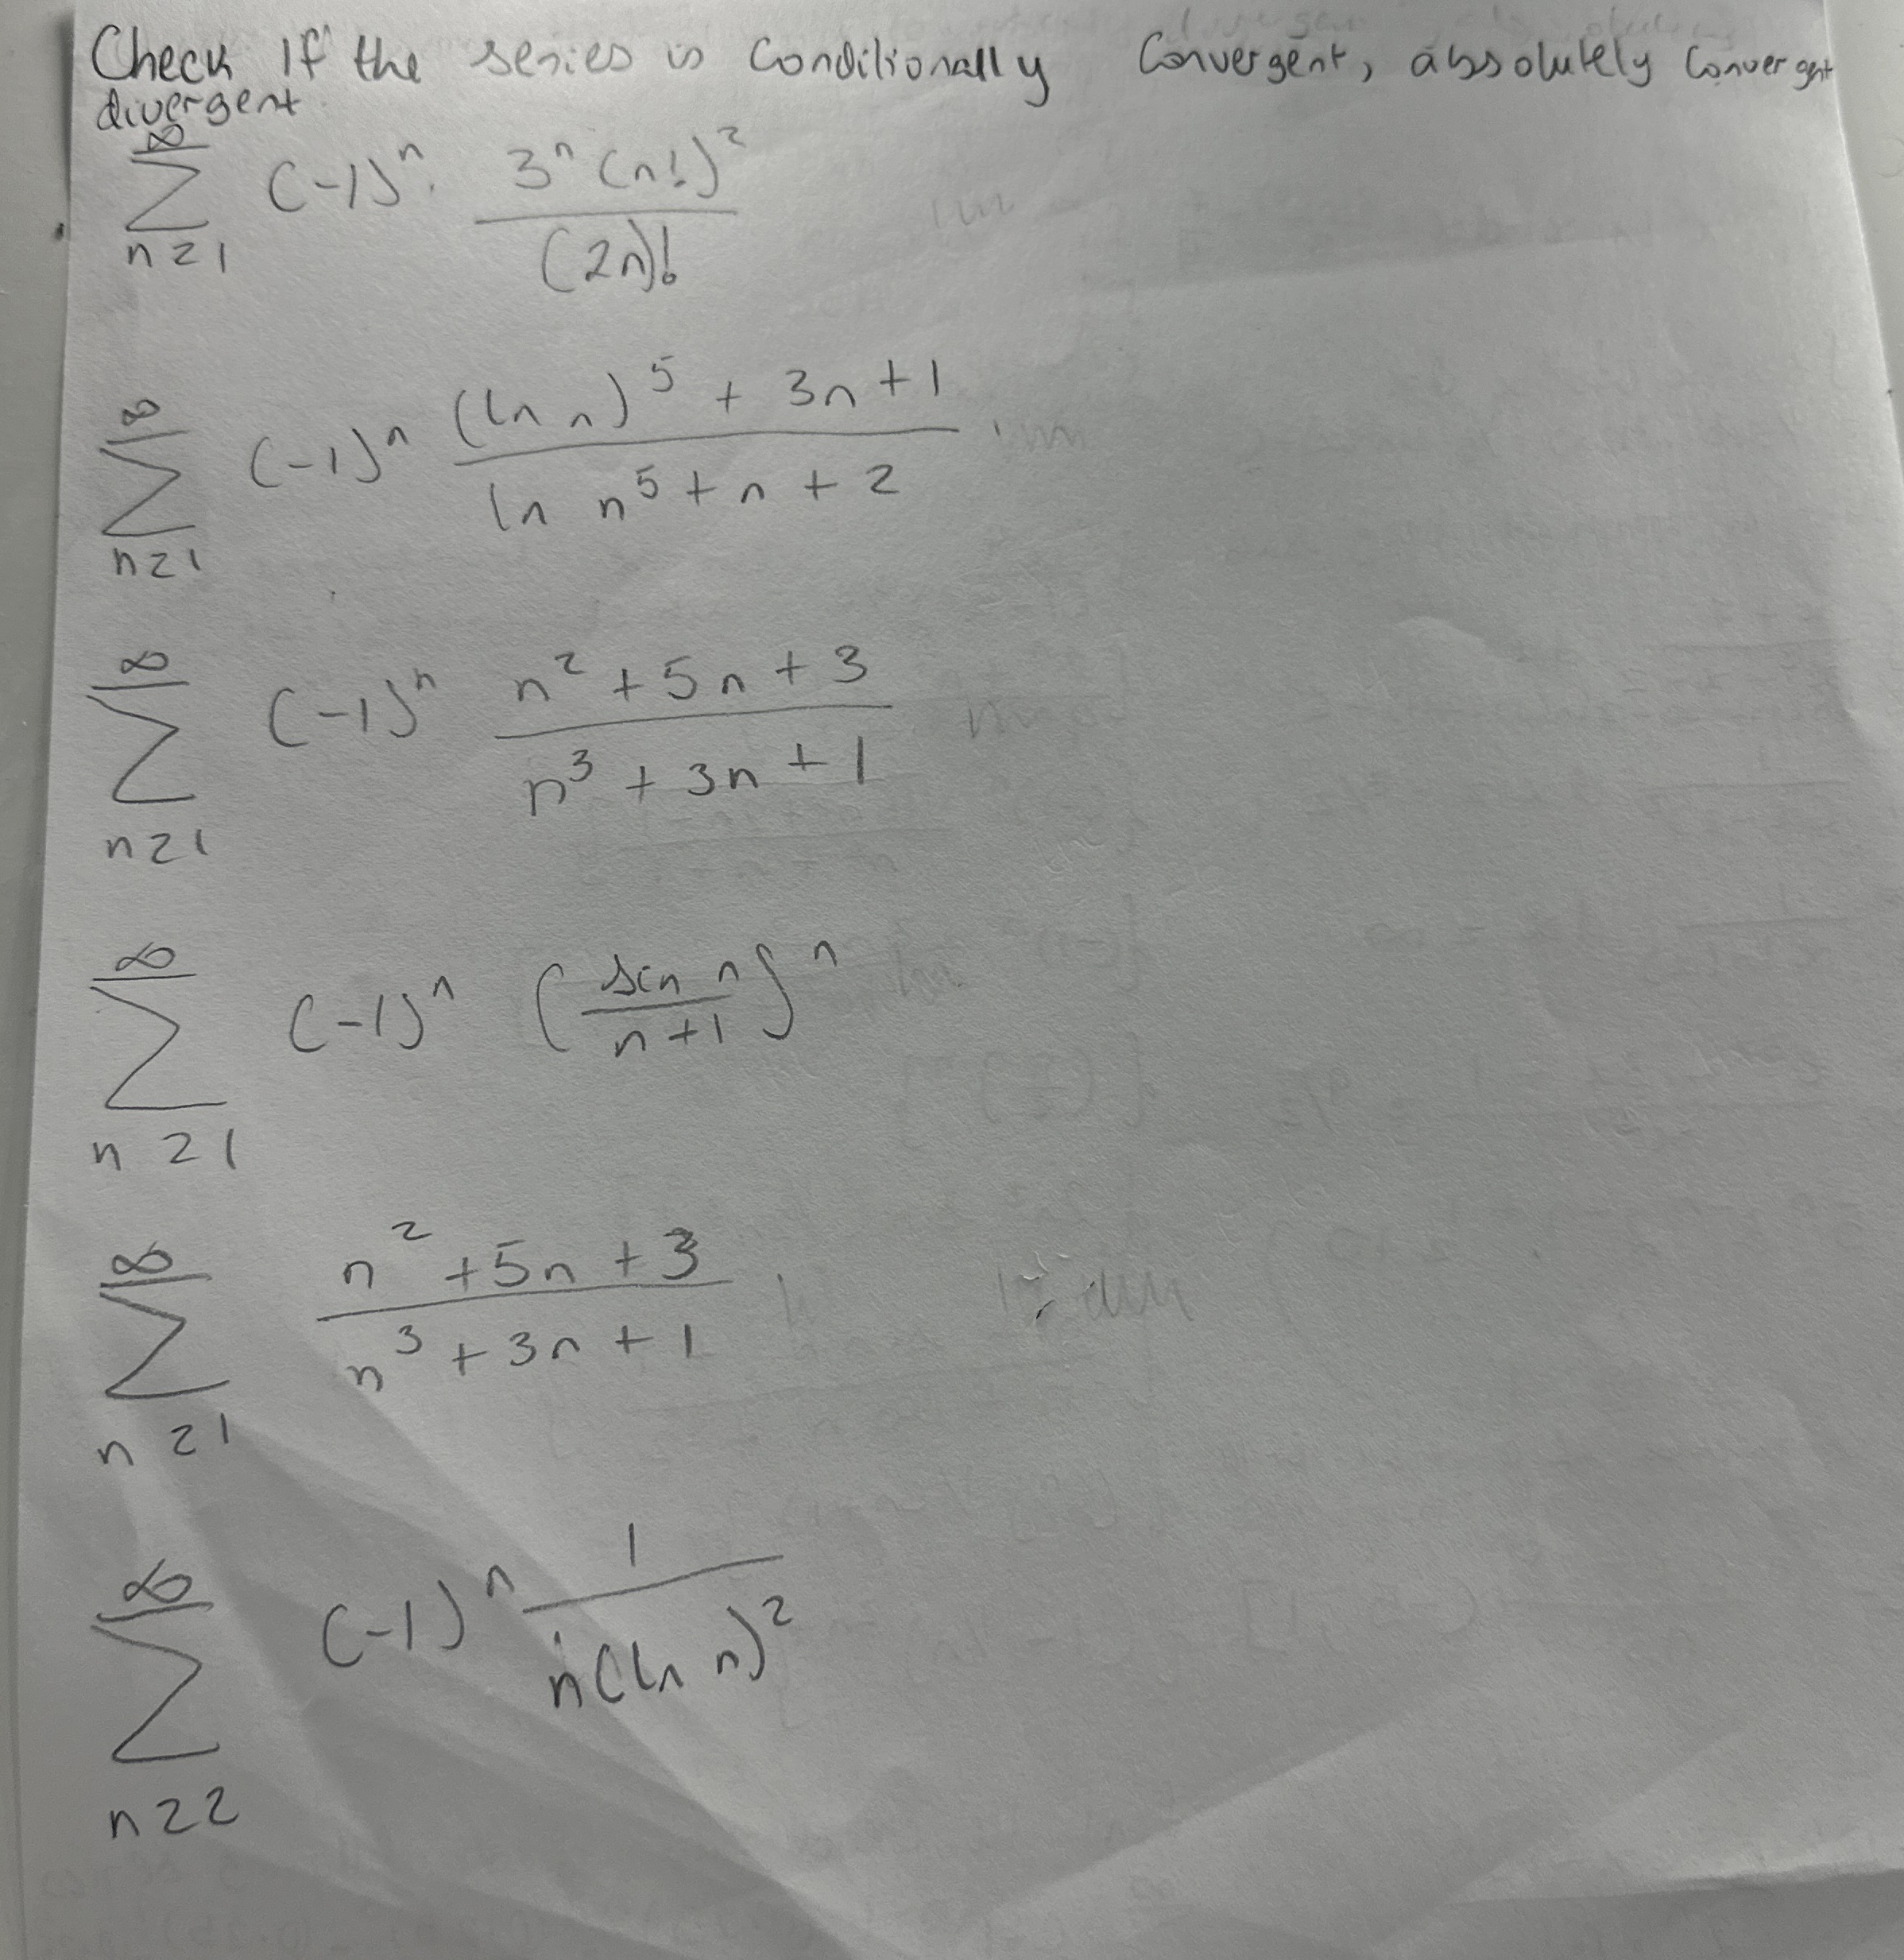 Check If the series is Conditionally Convergent, absolutely Convergent
divergent
∞
∑ (-1)^n · 3^n (n!)^2 / (2n)!
n=1
∞
∑ (-1)^n (ln n)^5 + 3n + 1 / ln n^5 + n + 2
n=1
∞
∑ (-1)^n n^2 + 5n + 3 / n^3 + 3n + 1
n=1
∞
∑ (-1)^n (sin n / n+1)^n
n=1
∞
∑ n^2 + 5n + 3 / n^3 + 3n + 1
n=1
∞
∑ (-1)^n 1 / n(ln n)^2
n=2